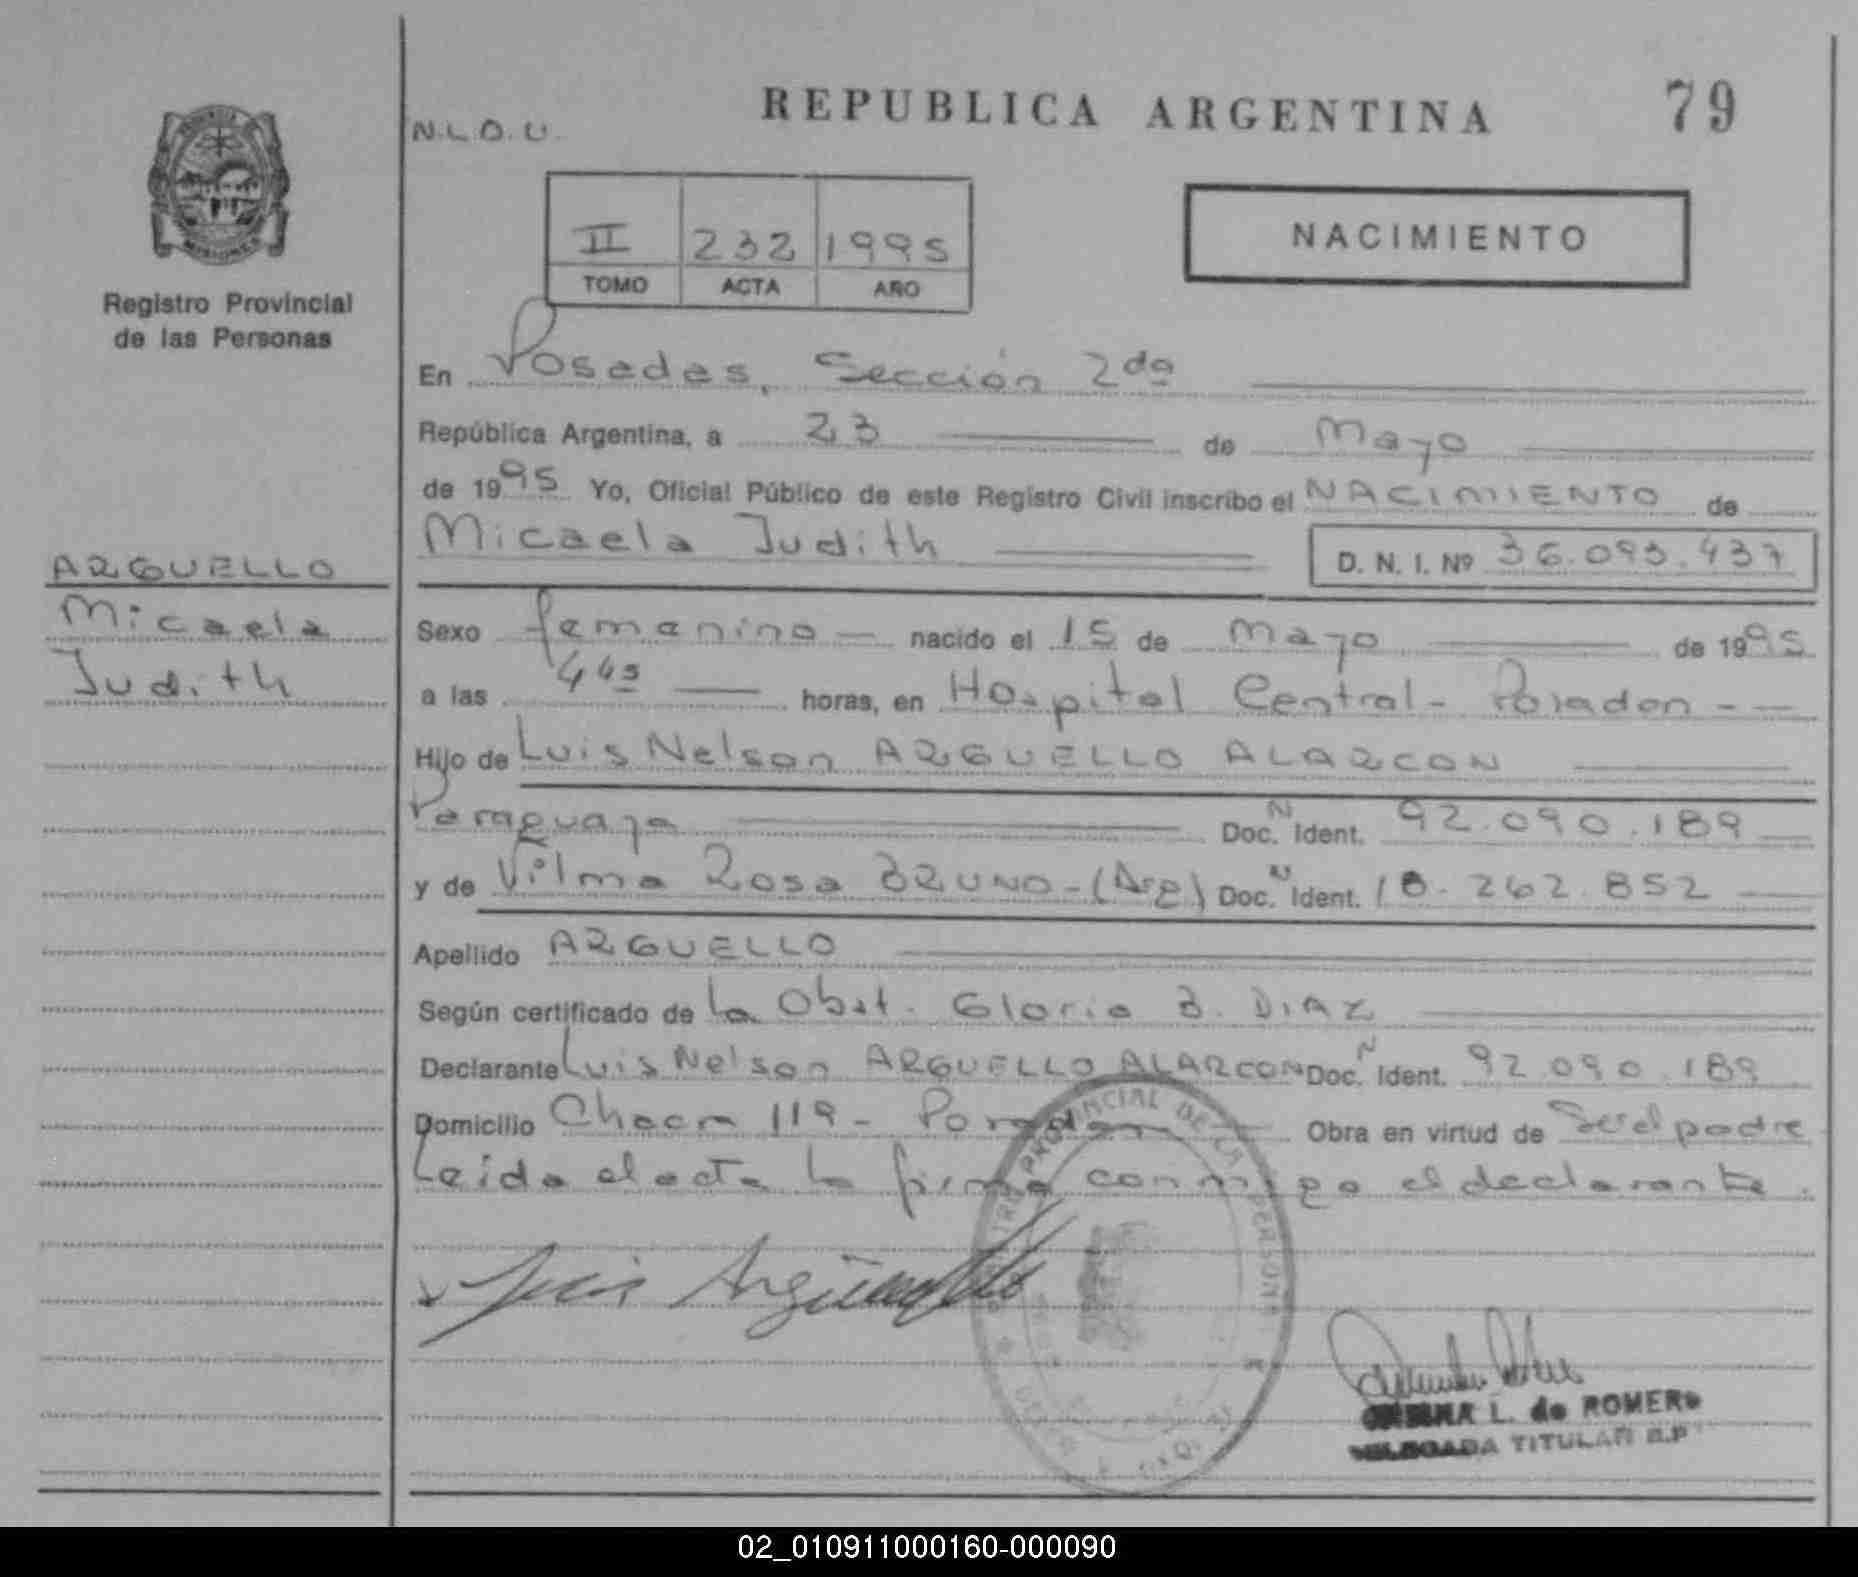 REPUBLICA ARGENTINA
79
N.L.O.U.
II 232 1995
TOMO ACTA AÑO
NACIMIENTO
Registro Provincial
de las Personas
En Posadas, Sección 2da
República Argentina, a 23 de Mayo
de 1995 Yo, Oficial Público de este Registro Civil inscribo el NACIMIENTO de
Micaela Judith D. N. I. Nº 36.093.437
ARGUELLO
Micaela
Judith
Sexo femenino nacido el 15 de Mayo de 1995
a las 4 45 horas, en Hospital Central - Posadas
Hijo de Luis Nelson ARGUELLO ALARCON
Paraguaya Doc. N Ident. 92.090.189
y de Vilma Rosa BRUNO - (Arg) Doc. N Ident. 18.262.852
Apellido ARGUELLO
Según certificado de la Obst. Gloria B. DIAZ
Declarante Luis Nelson ARGUELLO ALARCON Doc. N Ident. 92.090.189
Domicilio Chacra 119 - Posadas Obra en virtud de Ser el padre
Leida el acta la firma conmigo el declarante.
Luis Argüello
PROVINCIAL DE LAS PERSONAS
L. de ROMERO
DELEGADA TITULAR R.P
02_010911000160-000090